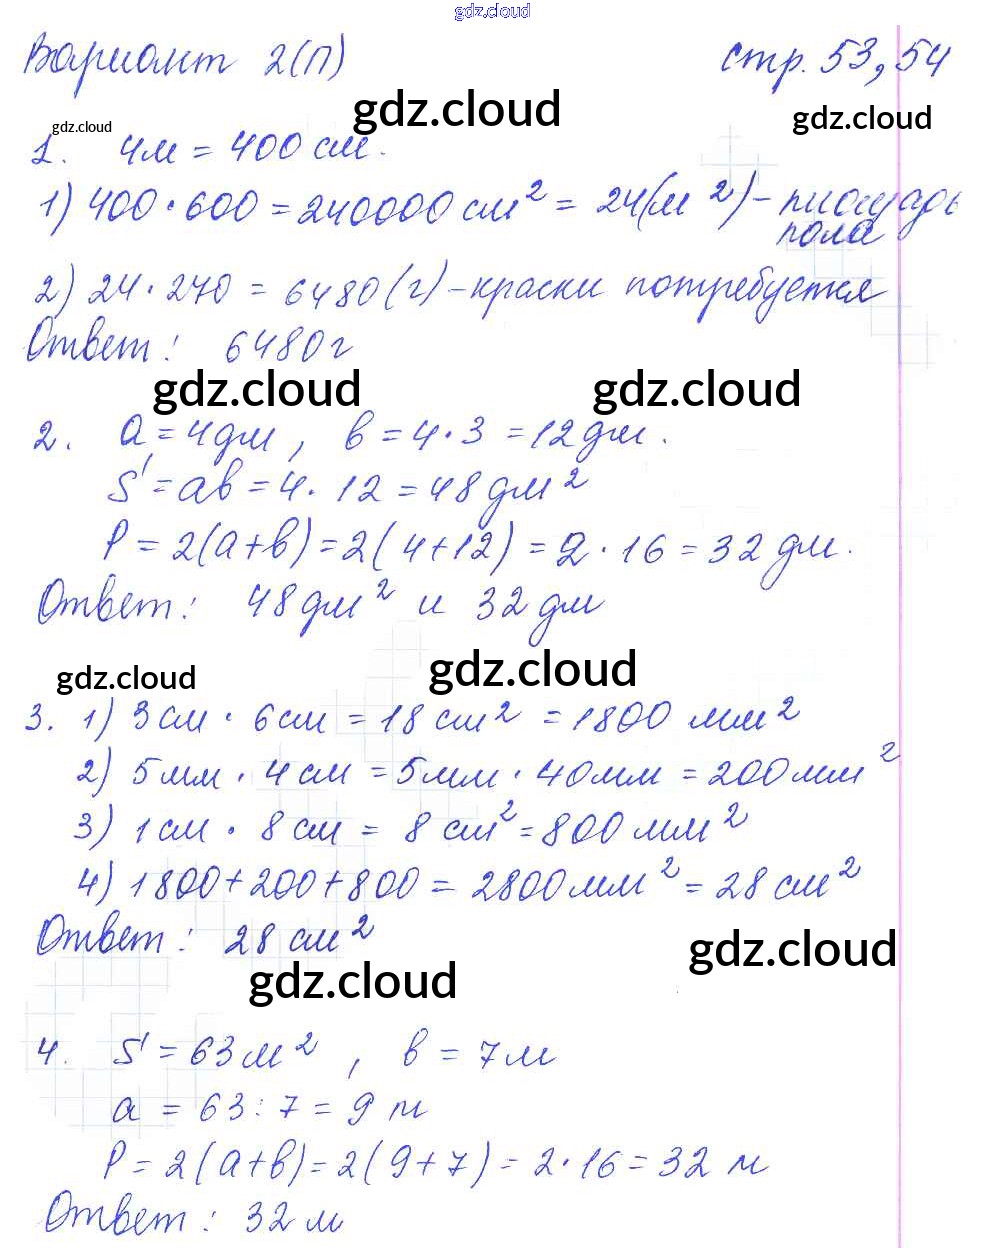 gdz.cloud
Вариант 2(П) стр. 53, 54
gdz.cloud
gdz.cloud
gdz.cloud
1. 4м = 400 см.
1) 400 · 600 = 240000 см² = 24(м²) – площадь
пола
2) 24 · 270 = 6480 (г) – краски потребуется
Ответ: 6480г
gdz.cloud gdz.cloud
2. a = 4дм, в = 4 · 3 = 12 дм.
S = aв = 4 · 12 = 48 дм²
P = 2(a+в) = 2(4+12) = 2 · 16 = 32 дм.
Ответ: 48 дм² и 32 дм
gdz.cloud gdz.cloud
3. 1) 3 см · 6 см = 18 см² = 1800 мм²
2) 5 мм · 4 см = 5 мм · 40 мм = 200 мм²
3) 1 см · 8 см = 8 см² = 800 мм²
4) 1800 + 200 + 800 = 2800 мм² = 28 см²
Ответ: 28 см²
gdz.cloud gdz.cloud
4. S = 63 м², в = 7 м
a = 63 : 7 = 9 м
P = 2(a+в) = 2(9+7) = 2 · 16 = 32 м
Ответ: 32 м